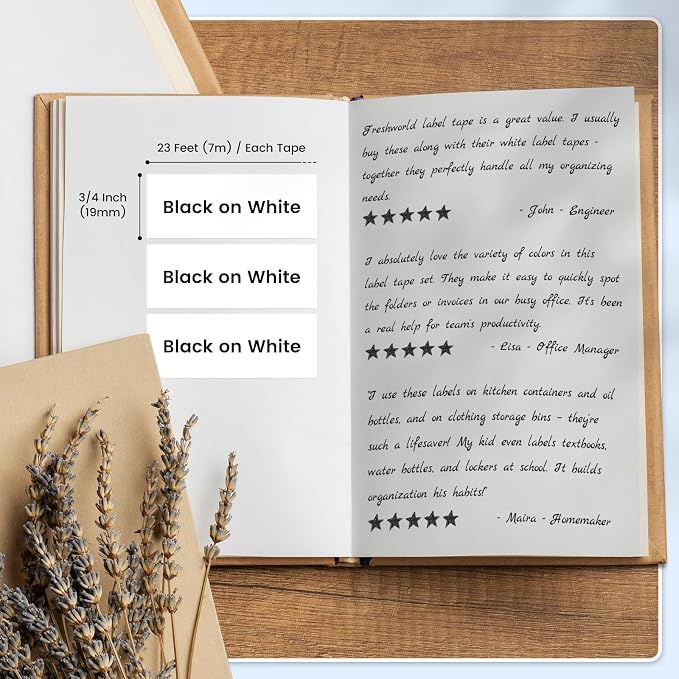 23 Feet (7m) / Each Tape
3/4 Inch
(19mm)
Black on White
Black on White
Black on White
Freshworld label tape is a great value. I usually
buy these along with their white label tapes -
together they perfectly handle all my organizing
needs.
- John - Engineer
I absolutely love the variety of colors in this
label tape set. They make it easy to quickly spot
the folders or invoices in our busy office. It's been
a real help for team's productivity.
- Lisa - Office Manager
"I use these labels on kitchen containers and oil
bottles, and on clothing storage bins – they're
such a lifesaver! My kid even labels textbooks,
water bottles, and lockers at school. It builds
organization his habits!"
- Maira - Homemaker